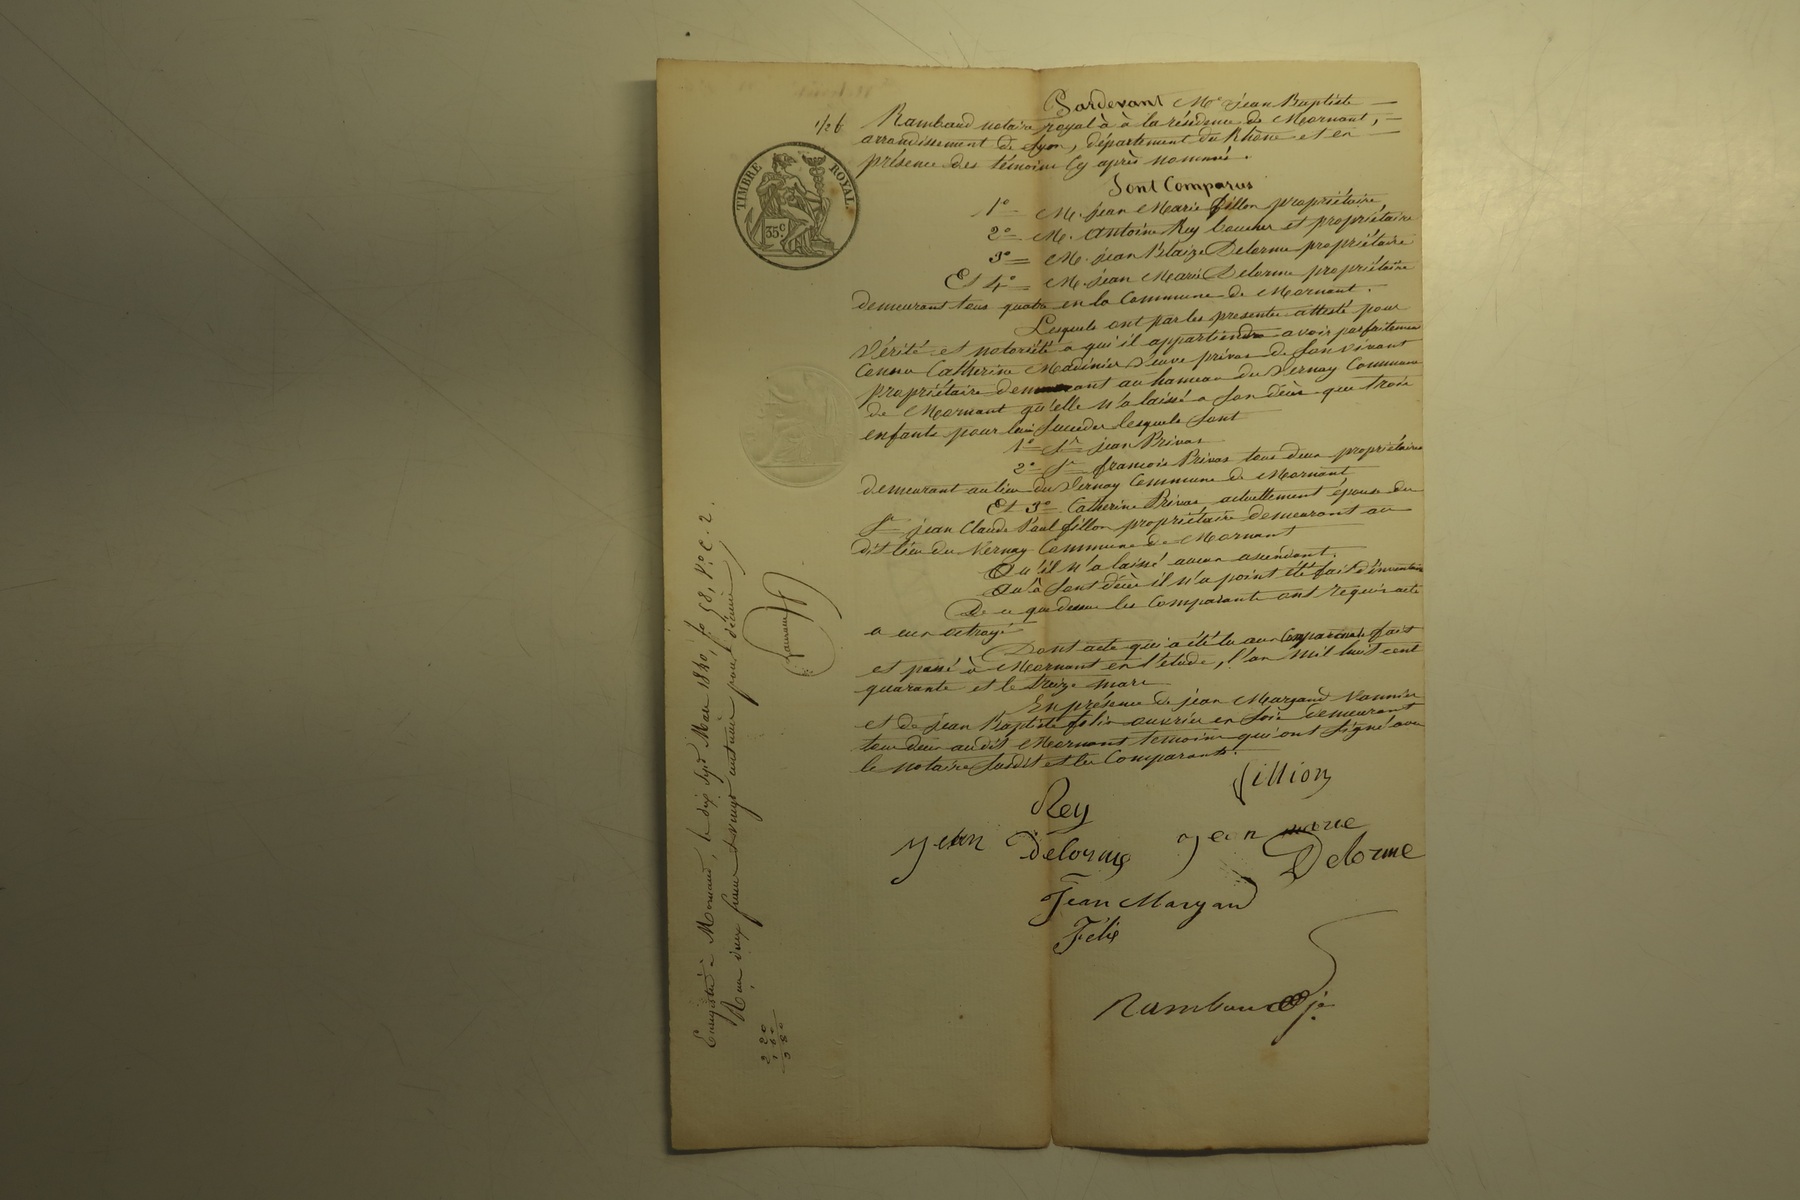 1/2 b
TIMBRE ROYAL
35 c
Pardevant Me jean Baptiste
Rambaud notaire royal à à la résidence de Mornant,
arrondissement de Lyon, département du Rhône et en
présence des témoins cy après nommés.
Sont Comparus
1o M. jean Marie fillon propriétaire,
2o M. Antoine Rey boucher et propriétaire
3o M. jean Blaize Delorme propriétaire
Et 4o M. jean Marie Delorme propriétaire
demeurant tous quatre en la Commune de Mornant.
Lesquels ont par les presentes attesté pour
Vérité et notoriété a qui il appartiendra avoir parfaitement
Connu Catherine Madinier Veuve privas de son vivant
propriétaire demeurant au hameau du Vernay Commune
de Mornant qu'elle n'a laissé a son décès que trois
enfants pour lui succéder lesquels sont
1o Sr jean Privas
2o Sr françois Privas tous deux propriétaires
demeurant au lieu du Vernay Commune de Mornant
Et 3o Catherine Privas actuellement épouse du
Sr jean Claude Paul fillon propriétaire demeurant au
dit lieu du Vernay Commune de Mornant
Qu'il n'a laissé aucun ascendant.
Qu'à sont décès il n'a point été fait d'inventaire
De ce que dessus les Comparants ont requis acte
a eux octroyé
Dont acte qui a été lu aux Comparants fait
et passé à Mornant en l'étude, l'an mil huit cent
quarante et le treize mars
En présence de jean Margand Vannier
et de jean Baptiste félix ouvrier en soie demeurant
tous deux au dit Mornant temoins qui ont signé avec
le notaire susdit et les Comparants.
fillion
Rey
jean Delorme
jean marie Delorme
Jean Margand
Félix
Rambaud je
Enregistré à Mornant, le dix sept Mars 1840, fo 58, Vo c. 2.
Reçu deux francs vingt centimes pour décime
2 20
1 60
3 80